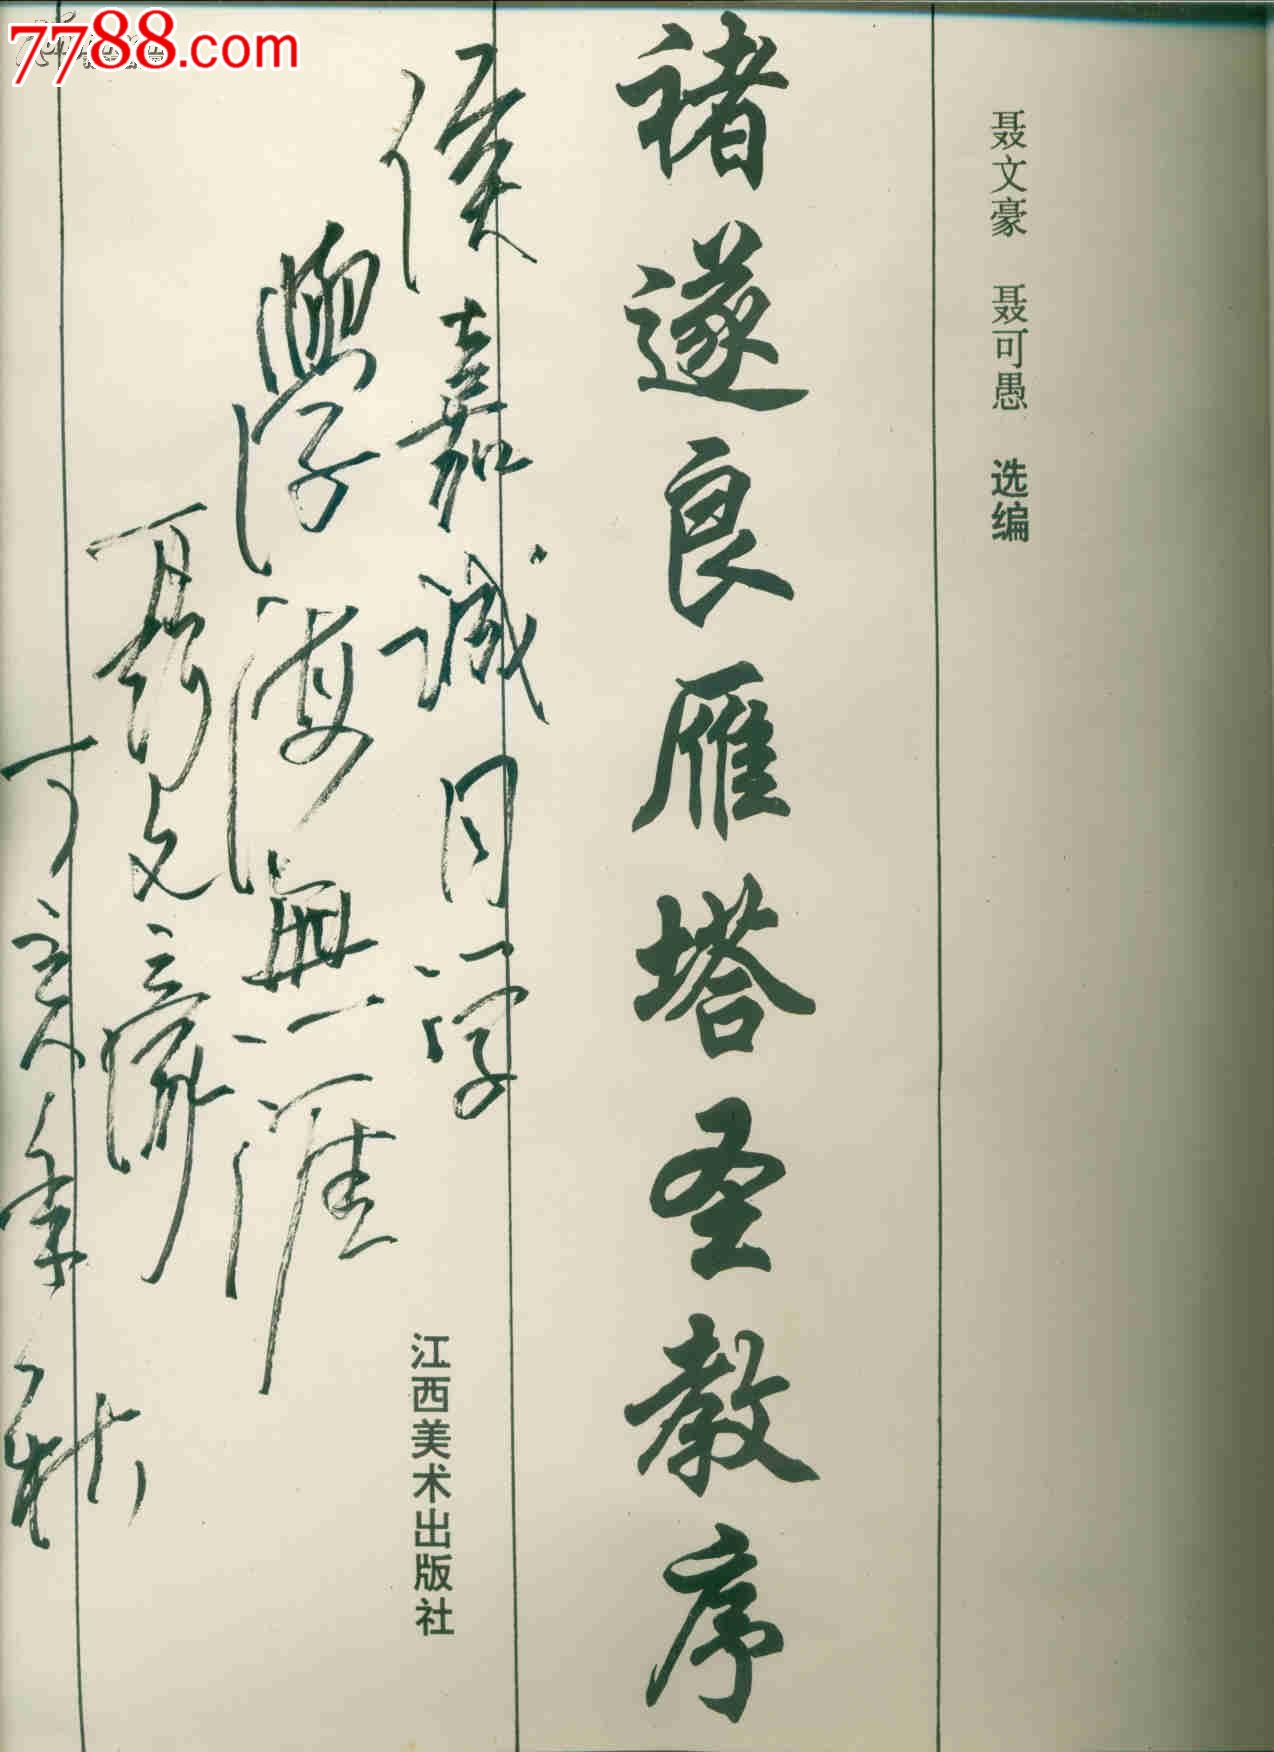 7788.com
聂文豪 聂可愚 选编
褚遂良雁塔圣教序
江西美术出版社
侯嘉诚同学
學海無涯
聂文豪
丁亥季秋